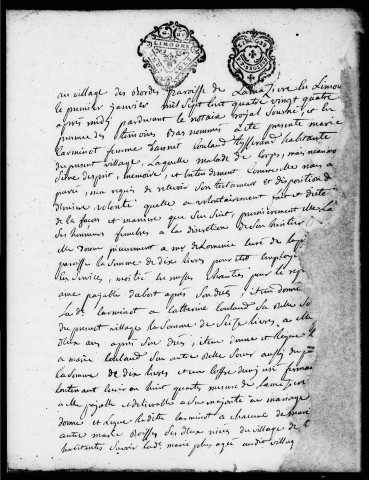 au village des Bordes paroisse de Lamazière en Limou
le premier janvier mil sept cent quatre vingt quatre
après midy pardevant le notaire royal soussigné, et en
presence des temoins bas nommés a été presente marie
larminot femme d'annet Couland tisserand habitante
du present village, laquelle malade de corps, mais neanmo
saine desprit, memoire, et entendement comme elle nous a
paru, ma requis de recevoir son testament et disposition d
derniere volonté quelle a volontairement fait et dicté
de la façon et maniere que sen suit, premierement elle la
ses honneurs funebres a la discretion de son heritier
elle donne pieusement a mr de curé de
paroisse la somme de dix livres pour etre employés
en services, moitié en messes chantées pour le repo
ame payable d'abort après son décès, item donne
lad larminot a catherine Couland sa belle so
du present village la somme de seize livres a elle
deux ans après son décès, item donne et legue
a marie Couland son autre belle soeur aussy du
la somme de dix livres et un coffre
contenant environ huit quartes mesure de
a elle payable et delivrable a sa majorité ou mariage
donne et legue ladite larminot a chacune de marie
autre marie ses deux nieces du village de l
habitantes savoir lad marie plus agée audit villag